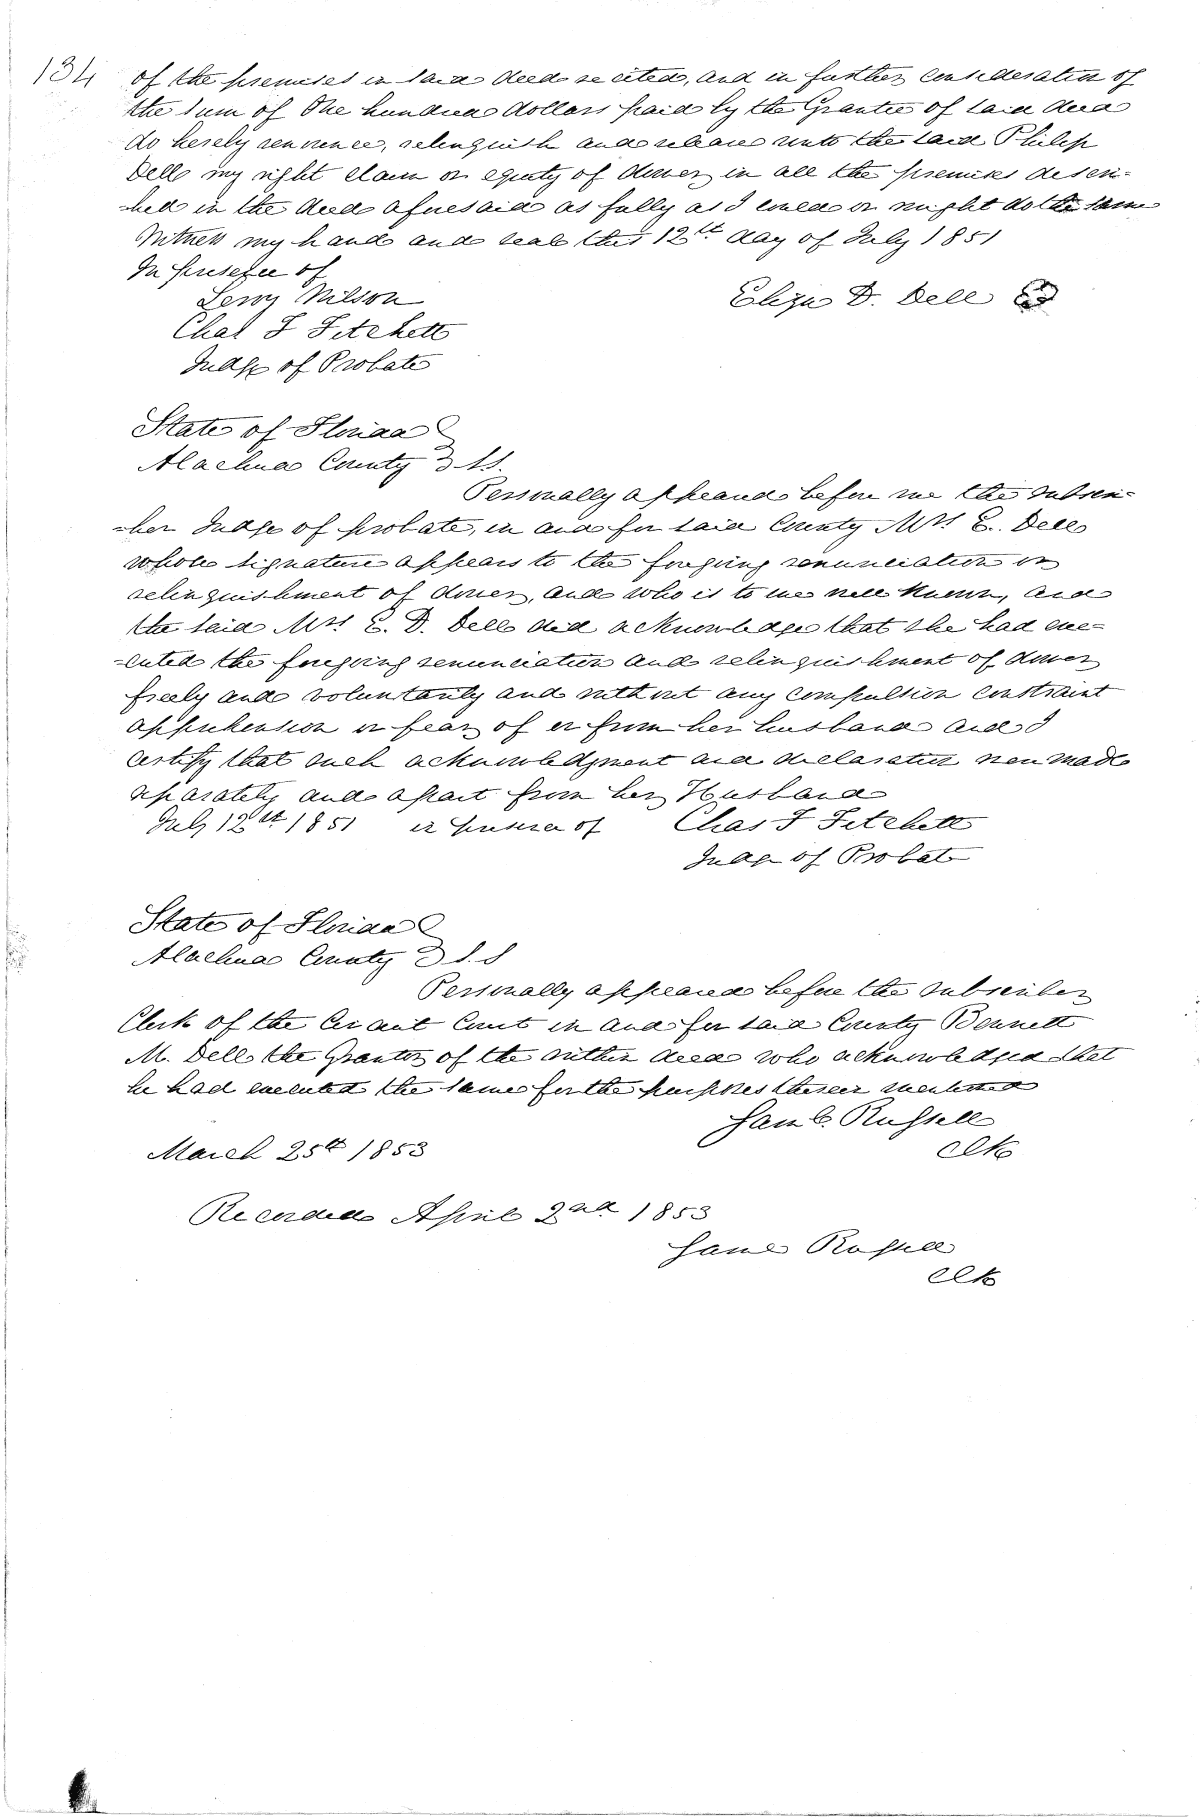 134
of the premises in said deed recited, and in further consideration of
the sum of One hundred dollars paid by the Grantee of said deed
do hereby renounce, relinquish and release unto the said Philip
Dell my right claim or equity of dower in all the premises descri-
-bed in the deed aforesaid as fully as I could or might do the same
Witness my hand and seal this 12th day of July 1851
In presence of
Leroy Wilson
Eliza D. Dell
Chas F Fitchett
Judge of Probate
State of Florida
Alachua County SS.
Personally appeared before me the subscri-
-ber Judge of probate, in and for said County Mrs E. Dell
whose signature appears to the foregoing renunciation or
relinquishment of dower, and who is to me well known, and
the said Mrs E. D. Dell did acknowledge that she had exe-
-cuted the foregoing renunciation and relinquishment of dower
freely and voluntarily and without any compulsion constraint
apprehension or fear of or from her husband and I
certify that such acknowledgment and declaration was made
separately and apart from her Husband
July 12th 1851 in presence of Chas F Fitchett
Judge of Probate
State of Florida
Alachua County S.S
Personally appeared before the subscriber
Clerk of the Circuit Court in and for said County Bennett
M. Dell the Grantor of the within deed who acknowledged that
he had executed the same for the purposes therein mentioned
Saml. Russell
March 25th 1853
clk
Recorded April 2nd 1853
Saml Russell
clk